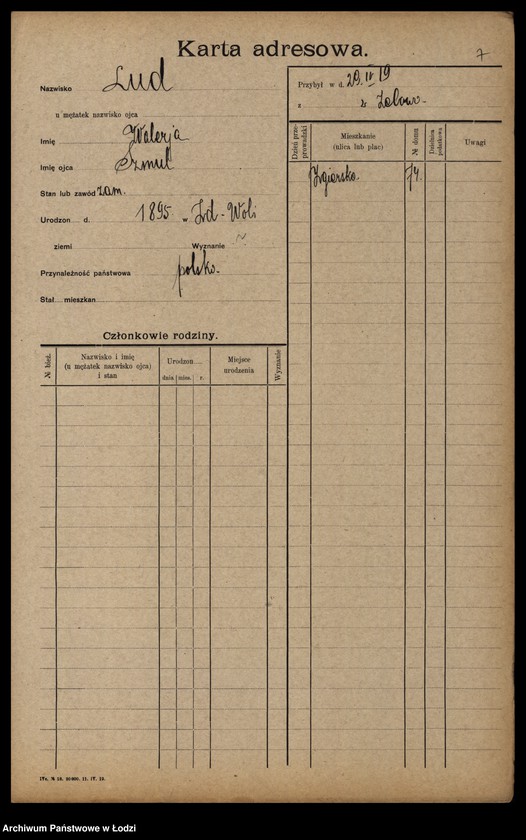 Karta adresowa.
7
Nazwisko Lud
u mężatek nazwisko ojca
Imię Walerja
Imię ojca Szmul
Stan lub zawód zam.
Urodzon d. 1895 w Zd-Woli
ziemi Wyznanie ~
Przynależność państwowa polska.
Stał. mieszkan
Przybył w d. 29. IV 19
z z Zelowa.
Dzień prze-prowadzki
Mieszkanie
(ulica lub plac)
№ domu
Dzielnica podatkowa
Uwagi
Zgierska. 74.
Członkowie rodziny.
№ bież.
Nazwisko i imię
(u mężatek nazwisko ojca)
i stan
Urodzon
dnia mies. r.
Miejsce
urodzenia
Wyznanie
Archiwum Państwowe w Łodzi